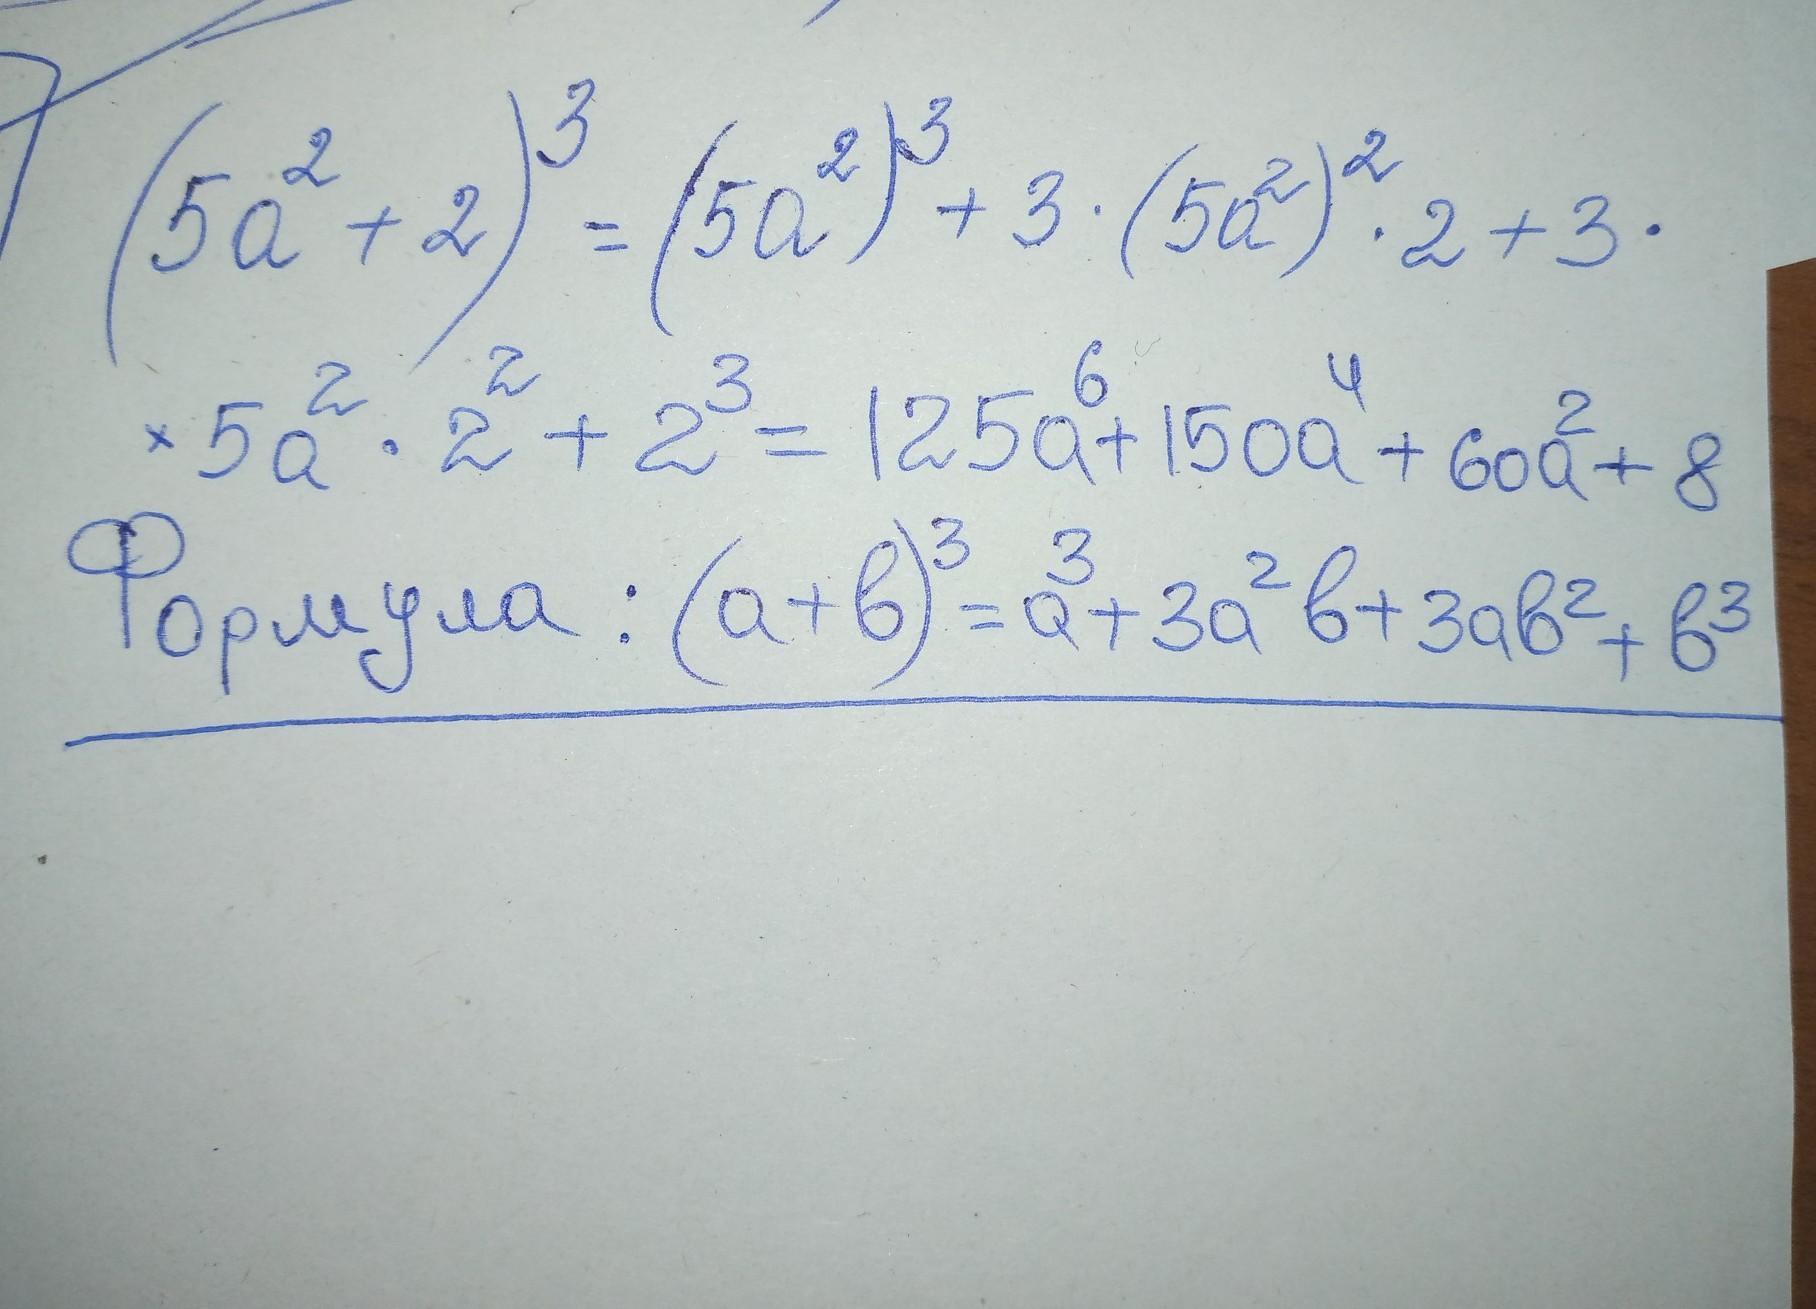 (5a²+2)³=(5a²)³+3·(5a²)²·2+3·
×5a²·2²+2³=125a⁶+150a⁴+60a²+8
Формула:(a+b)³=a³+3a²b+3ab²+b³